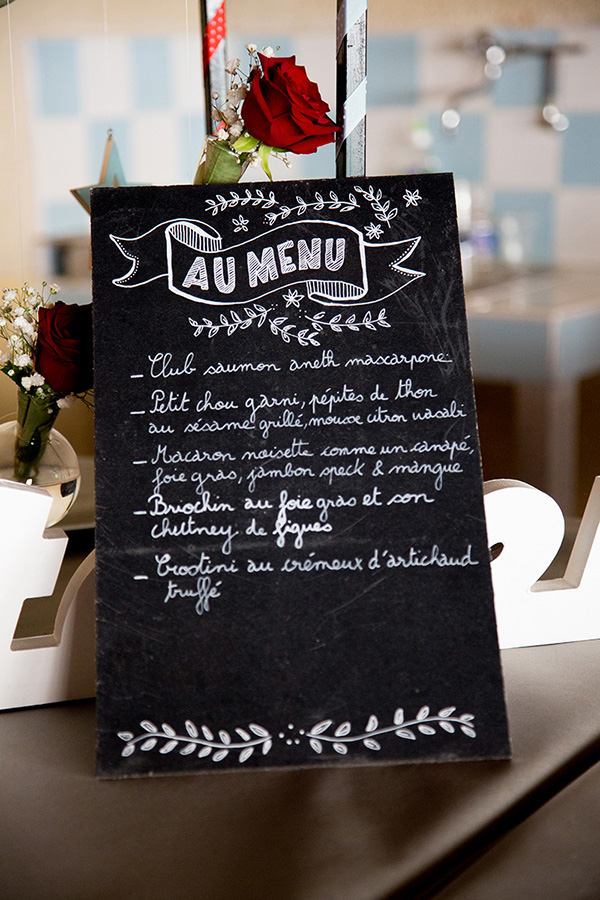 AU MENU
– Club saumon aneth mascarpone
– Petit chou garni, pépites de thon
au sésame grillé, mousse citron wasabi
– Macaron noisette comme un canapé,
foie gras, jambon speck & mangue
– Briochin au foie gras et son
chutney de figues
– Crostini au crémeux d'artichaud
truffé